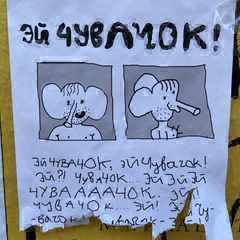 ЭЙ ЧУВАЧОК!
ЭЙ ЧУВАЧОК, ЭЙ Чувачок!
ЭЙ?! ЧУВАЧОК... ЭЙ ЭЙ ЭЙ
ЧУВАААЧОК... ЭЙ!
ЧУВАЧОК... ЭЙ! ЭЙ Чу-
вачок!